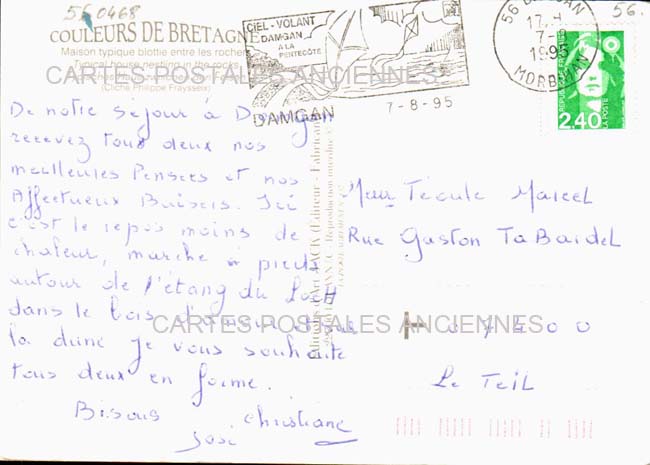 56 0468
COULEURS DE BRETAGNE
Maison typique blottie entre les rochers
Typical house nestling in the rocks
CARTES POSTALES ANCIENNES
(Cliché Philippe Fraysseix)
CIEL-VOLANT
DAMGAN
A LA
PENTECÔTE
DAMGAN
7-8-95
56 DAMGAN
17 H
7-8
1995
MORBIHAN
56.
2,40
LA POSTE
De notre séjour à Damgan
recevez tous deux nos
meilleures Pensées et nos
Affectueux Baisers. Ici
c'est le repos moins de
chaleur, marche à pieds
autour de l'étang du Loch
dans le bois
la dune je vous souhaite
tous deux en forme.
Bisous Christiane
José
Marcel
Rue Gaston TaBardel
CARTES POSTALES ANCIENNES
07400
Le Teil